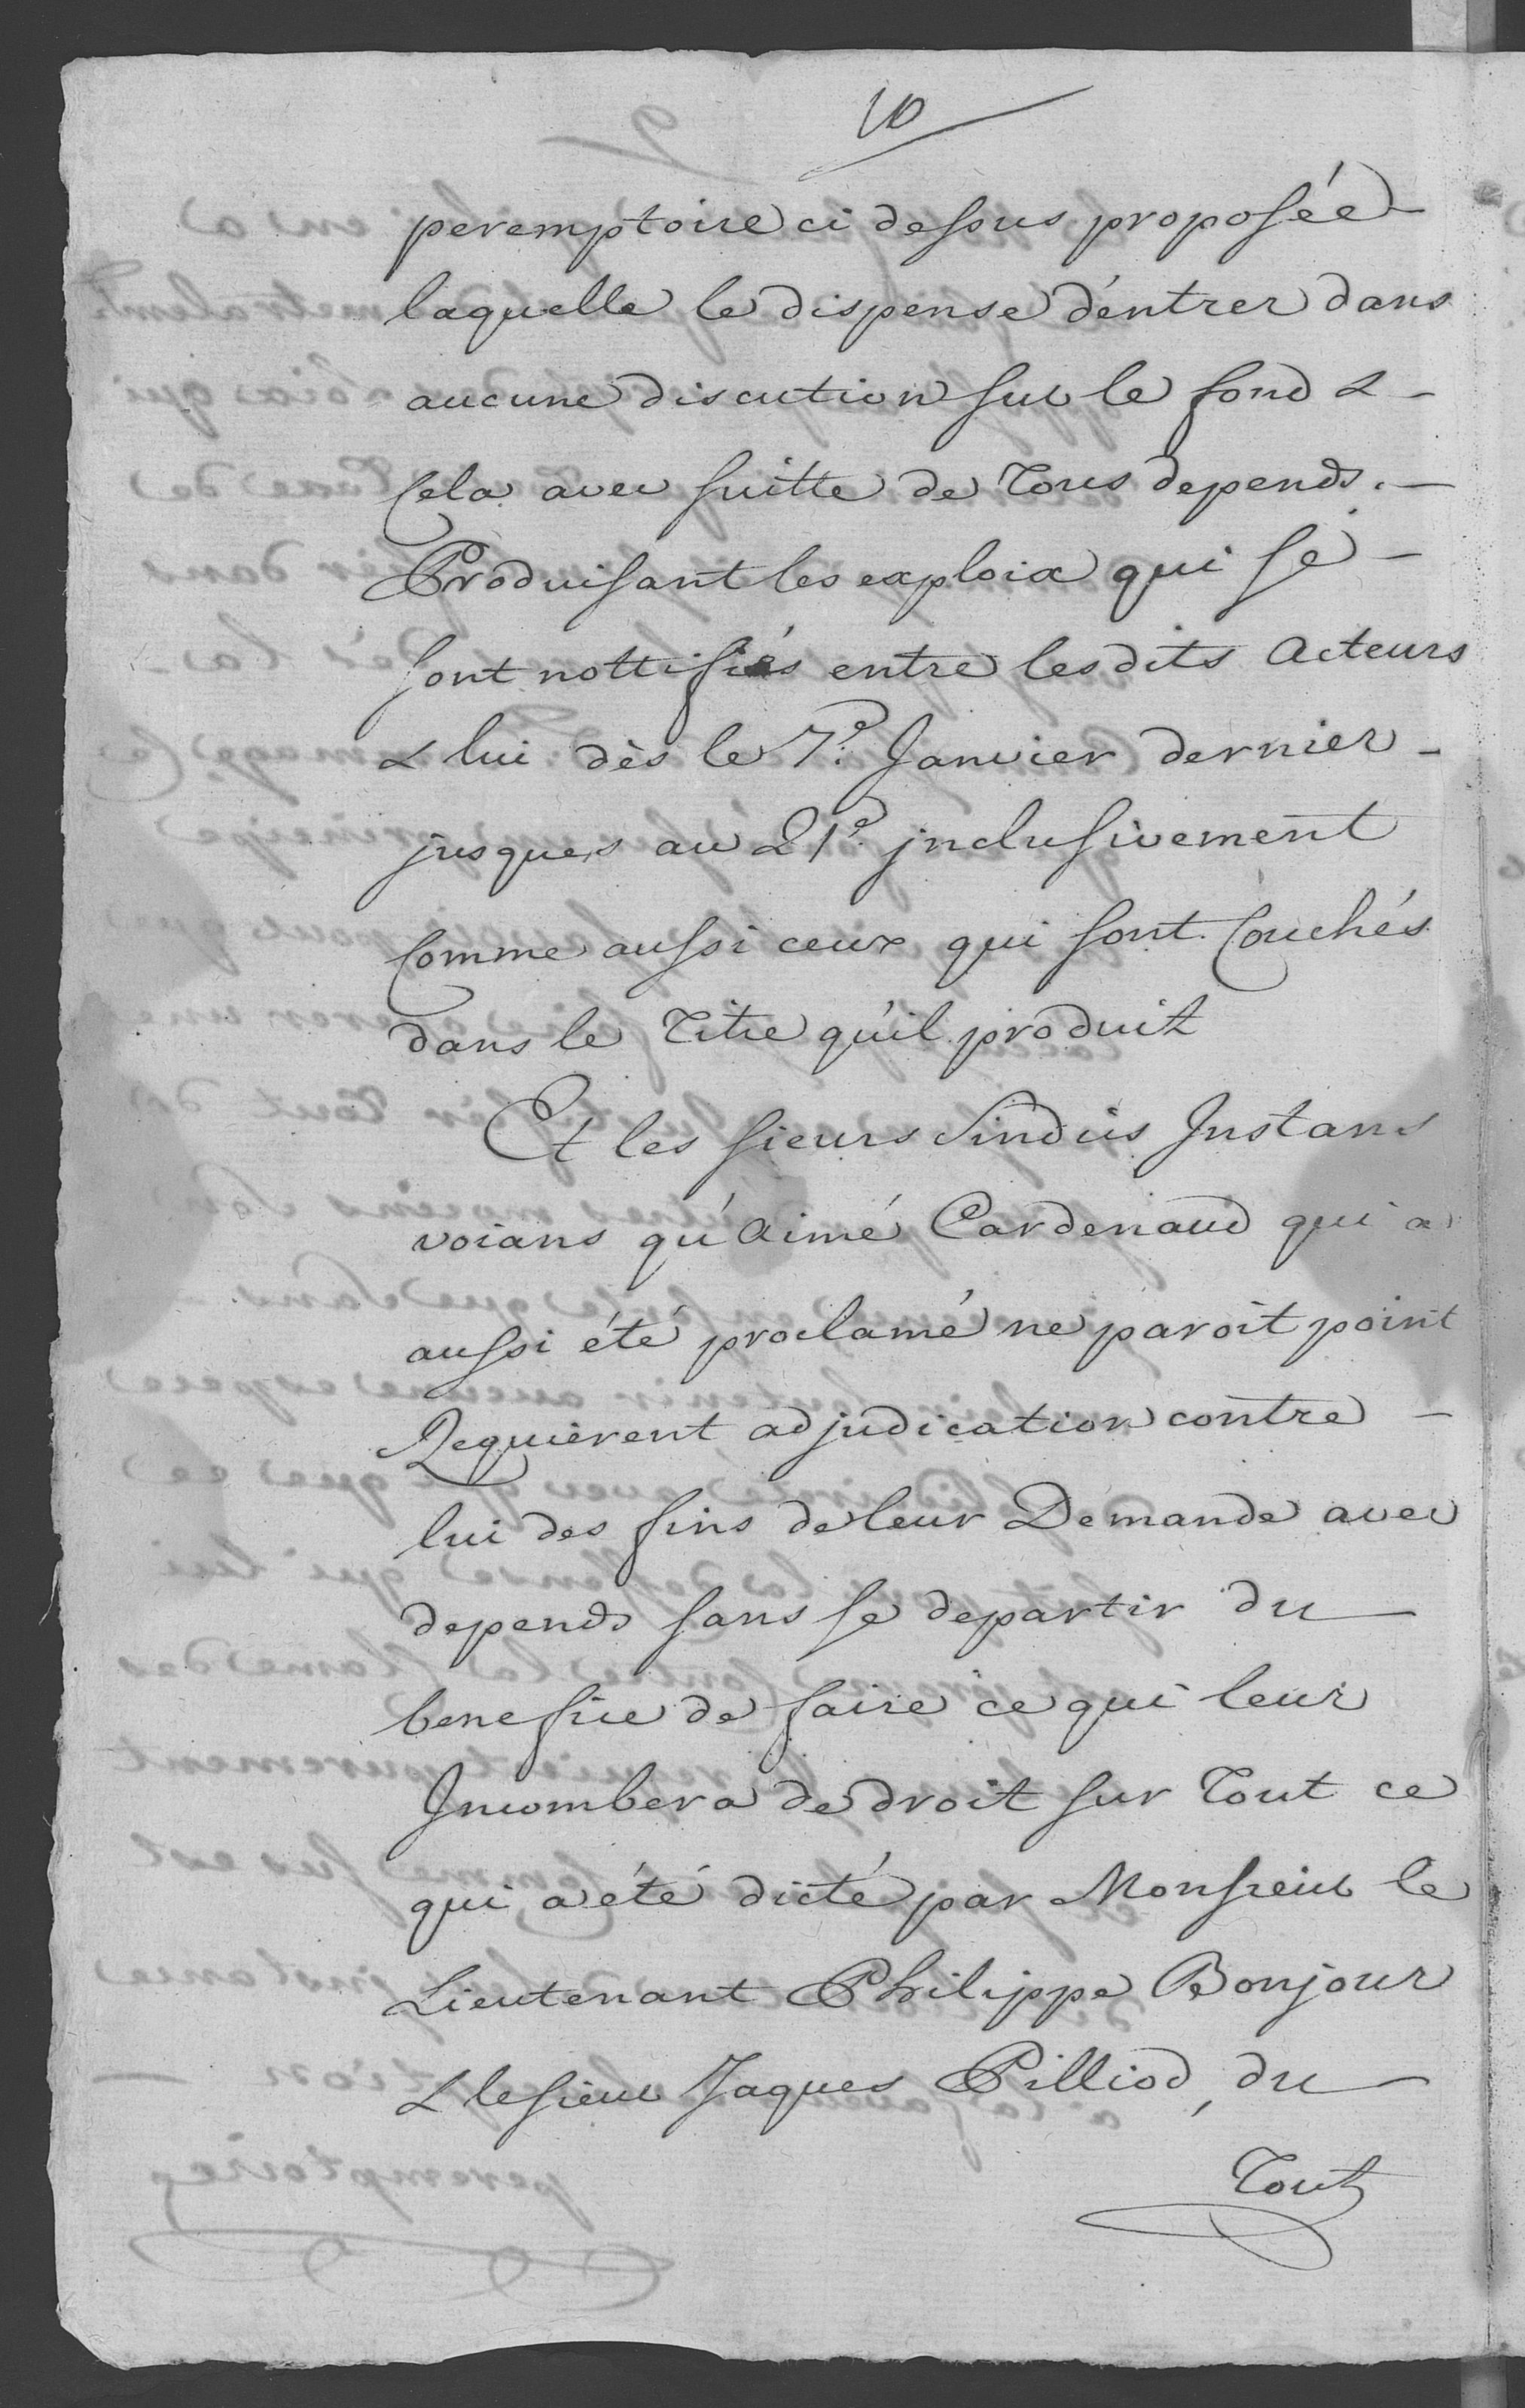 10
peremptoire ci dessus proposée
laquelle le dispense d'entrer dans
aucune discution sur le fond &
Cela avec suitte de Tous depends.
Produisant les exploix qui se
sont nottifiés entre les dits Acteurs
& lui dès le 7e. Janvier dernier
jusques au 21e. jnclusivement
Comme aussi ceux qui sont Couchés
dans le Titre qu'il produit
Et les sieurs Sindics Instans
voians qu'Aimé Cardenaud qui a
aussi été proclamé ne paroit point
Requièrent adjudication contre
lui des fins de leur Demande avec
depends sans se departir du
benefice de faire ce qui leur
Jncombera de droit sur Tout ce
qui a été dicté par Monsieur le
Lieutenant Philippe Bonjour
& le sieur Jaques Pilliod, du
Tout